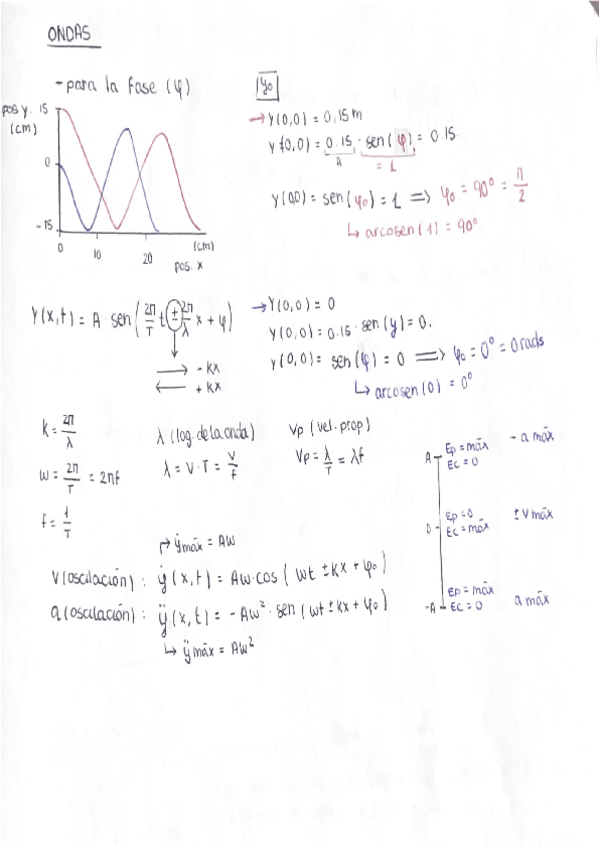 ONDAS
- para la Fase (φ)
pos y. 15
(cm)
0
-15
0
10
20
(cm)
pos. x
y₀
→ y(0,0) = 0,15m
y(0,0) = 0.15 · sen(φ) = 0.15
A
= 1
y(0,0) = sen(φ₀) = 1 => φ₀ = 90° = π/2
↳ arcosen(1) = 90°
y(x,t) = A · sen(2π/T t ± 2π/λ x + φ)
→ - kx
← + kx
→ y(0,0) = 0
y(0,0) = 0.15 · sen(y) = 0.
y(0,0) = sen(φ) = 0 => φ₀ = 0° = 0 rads
↳ arcosen(0) = 0°
k = 2π/λ
w = 2π/T = 2πf
f = 1/T
λ (log. de la onda)
λ = v · T = v/f
Vp (vel. prop)
Vp = λ/T = λf
A
Ep = máx
Ec = 0
- a máx
0
Ep = 0
Ec = máx
± v máx
-A
Ep = máx
Ec = 0
a máx
↱ ẏmáx = Aw
v(oscilación) : ẏ(x,t) = Aw · cos (wt ± kx + φ₀)
a(oscilación) : ÿ(x,t) = - Aw² · sen (wt ± kx + φ₀)
↳ ÿmáx = Aw²